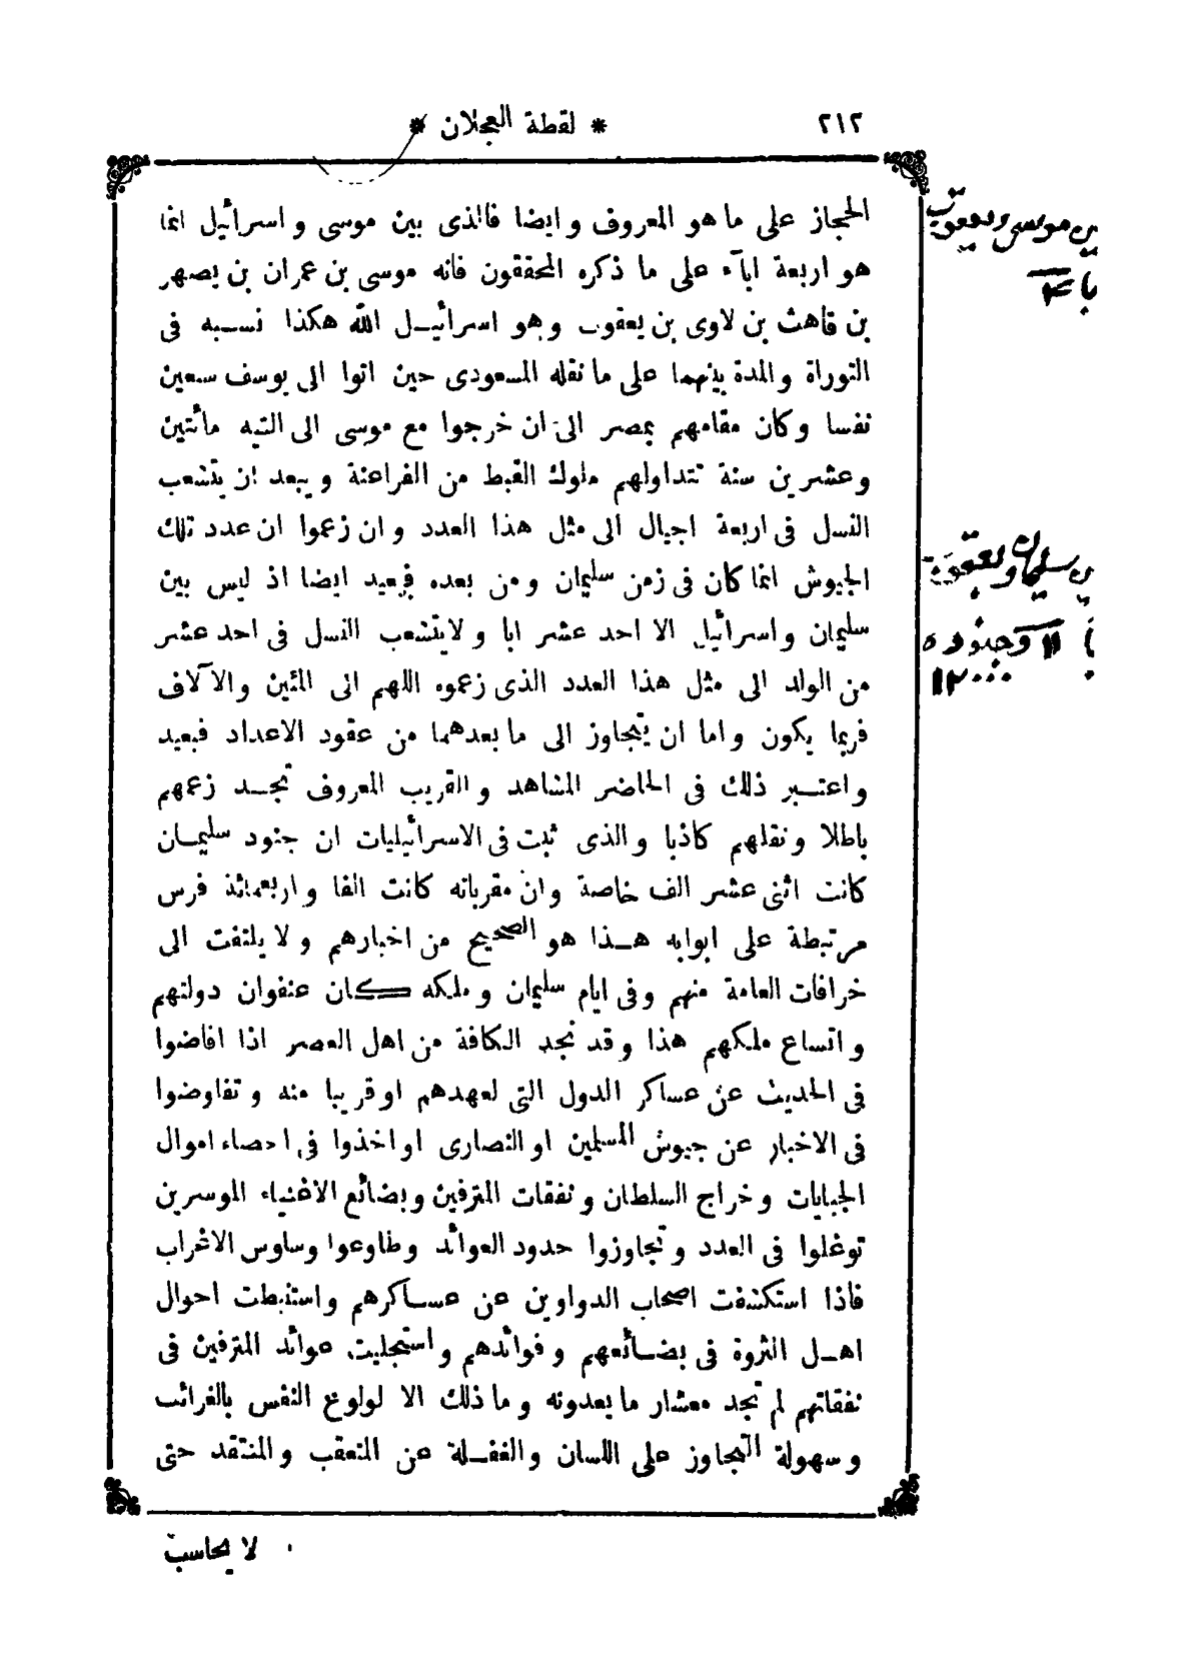 ٢١٢
* لقطة العجلان *
الحجاز على ما هو المعروف وايضا فالذى بين موسى واسرائيل انما
هو اربعة ابآء على ما ذكره المحققون فانه موسى بن عمران بن يصهر
بن قاهث بن لاوى بن يعقوب وهو اسرائيل الله هكذا نسبه فى
التوراة والمدة بينهما على ما نقله المسعودى حين اتوا الى يوسف سبعين
نفسا وكان مقامهم بمصر الى ان خرجوا مع موسى الى التيه مائتين
وعشرين سنة تتداولهم ملوك القبط من الفراعنة ويبعد ان يتشعب
النسل فى اربعة اجيال الى مثل هذا العدد وان زعموا ان عدد تلك
الجيوش انما كان فى زمن سليمان ومن بعده فبعيد ايضا اذ ليس بين
سليمان واسرائيل الا احد عشر ابا ولا يتشعب النسل فى احد عشر
من الولد الى مثل هذا العدد الذى زعموه اللهم الى المئين والآلاف
فربما يكون واما ان يتجاوز الى ما بعدهما من عقود الاعداد فبعيد
واعتبر ذلك فى الحاضر المشاهد والقريب المعروف تجد زعمهم
باطلا ونقلهم كاذبا والذى ثبت فى الاسرائيليات ان جنود سليمان
كانت اثنى عشر الف خاصة وان مقرباته كانت الفا واربعمائة فرس
مرتبطة على ابوابه هذا هو الصحيح من اخبارهم ولا يلتفت الى
خرافات العامة منهم وفى ايام سليمان وملكه كان عنفوان دولتهم
واتساع ملكهم هذا وقد نجد الكافة من اهل العصر اذا افاضوا
فى الحديث عن عساكر الدول التى لعهدهم او قريبا منه وتفاوضوا
فى الاخبار عن جيوش المسلمين او النصارى او اخذوا فى احصاء اموال
الجبايات وخراج السلطان ونفقات المترفين وبضائع الاغنياء الموسرين
توغلوا فى العدد وتجاوزوا حدود العوائد وطاوعوا وساوس الاغراب
فاذا استكشفت اصحاب الدواوين عن عساكرهم واستنبطت احوال
اهل الثروة فى بضائعهم وفوائدهم واستجليت عوائد المترفين فى
نفقاتهم لم تجد معشار ما يعدونه وما ذلك الا لولوع النفس بالغرائب
وسهولة التجاوز على اللسان والغفلة عن المتعقب والمنتقد حتى
لا يحاسب
بين موسى ويعقوب
سليمان ويعقوب
١١ وجنوده
١٢٠٠٠